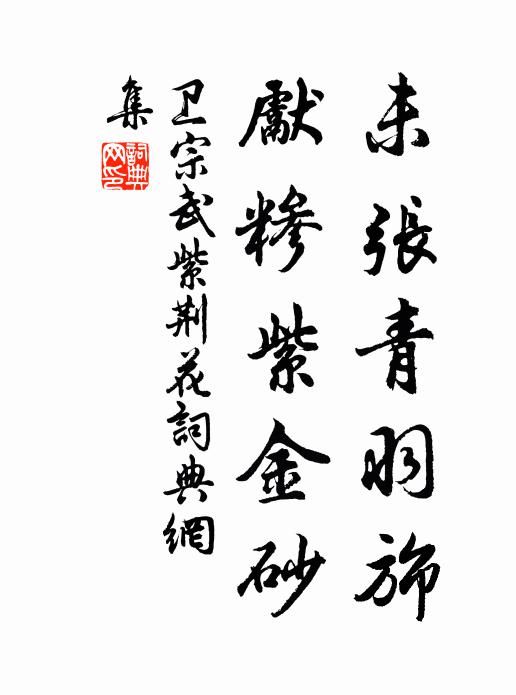 未張青羽斾
獻糝紫金砂
卫宗武紫荆花詞典網
集
詞典网印